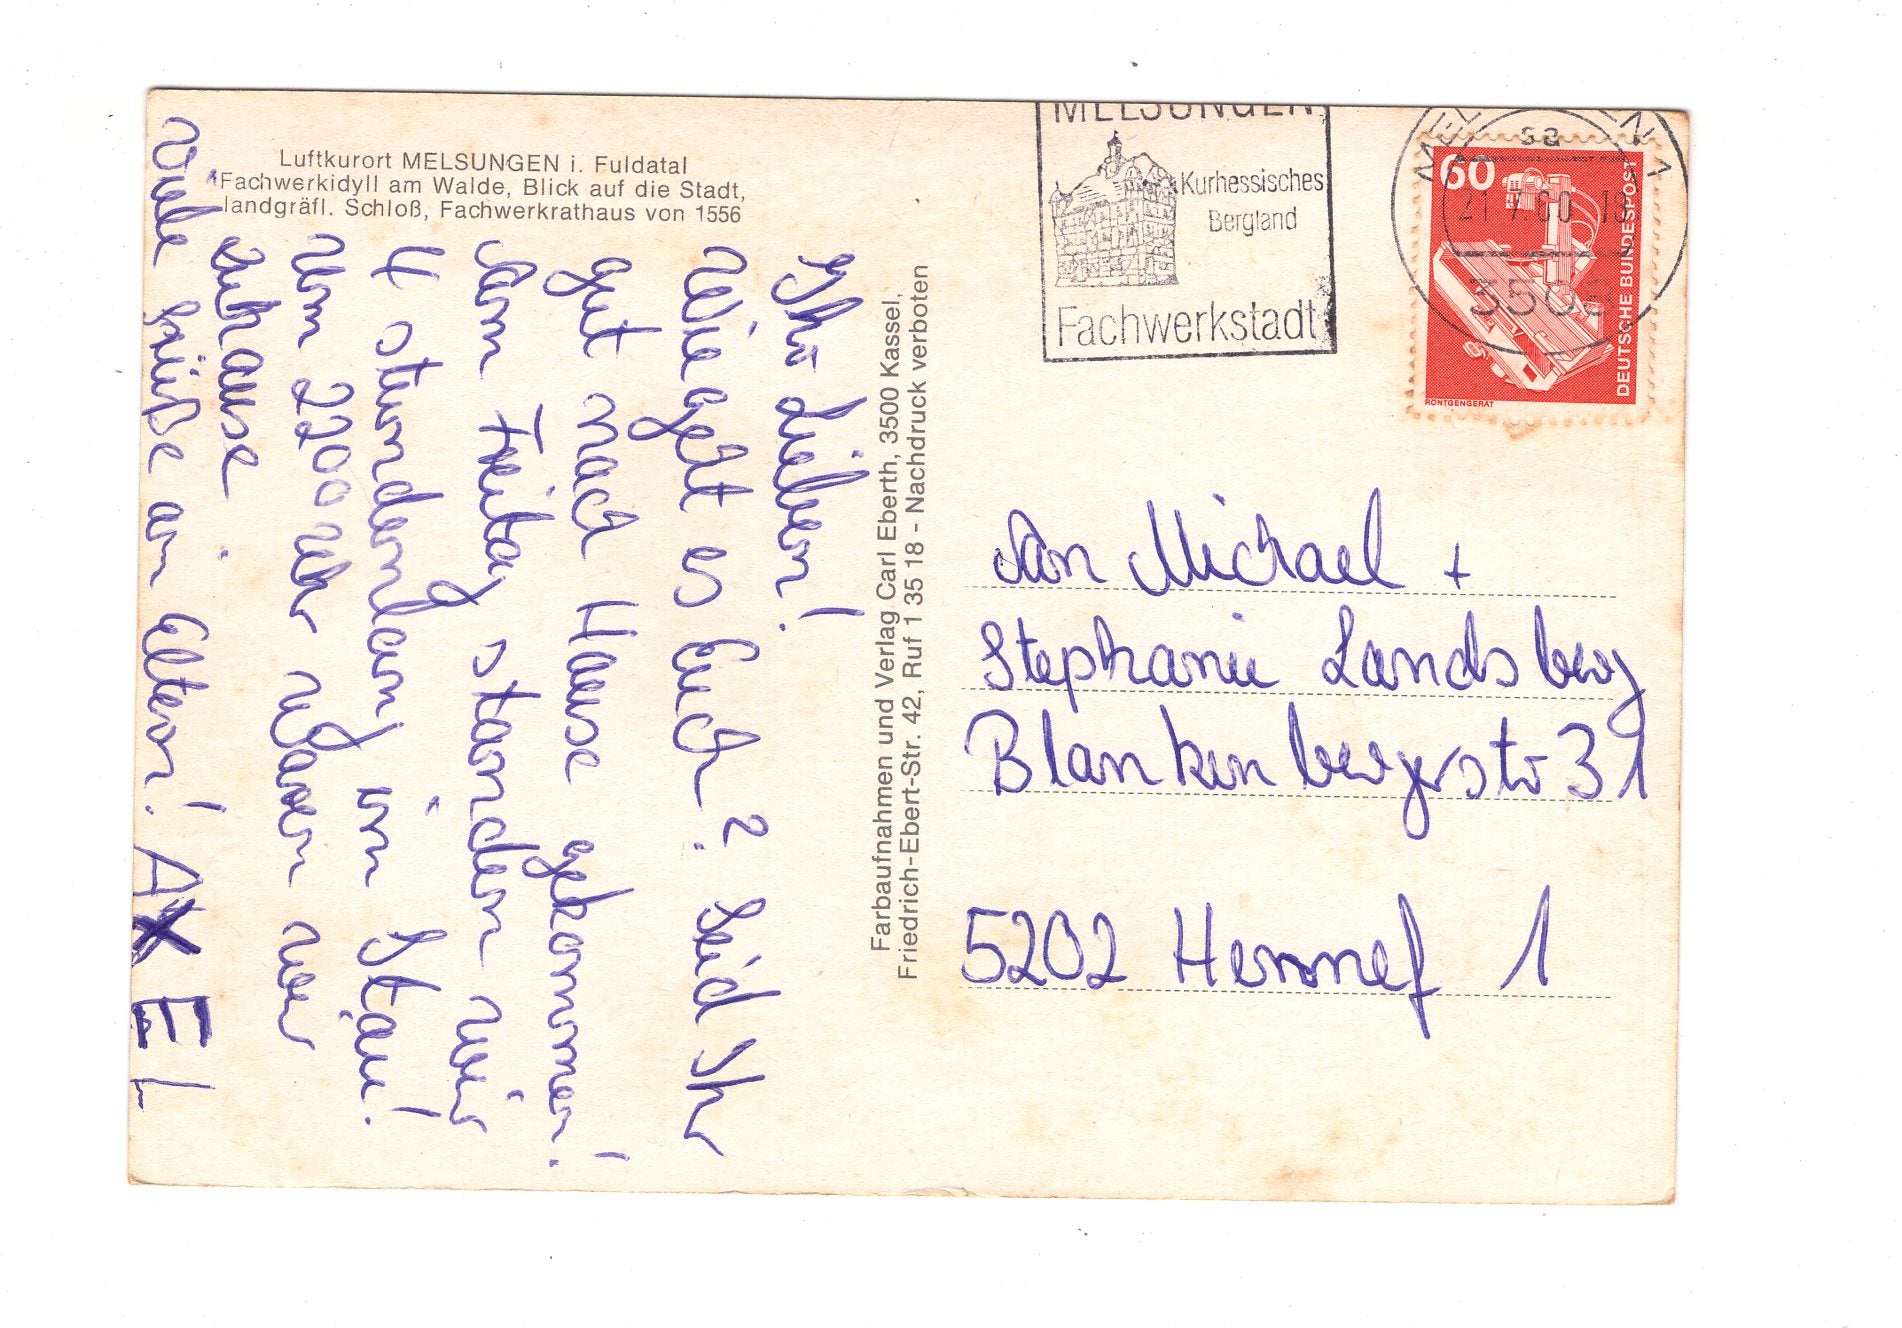 Luftkurort MELSUNGEN i. Fuldatal
Fachwerkidyll am Walde, Blick auf die Stadt,
landgräfl. Schloß, Fachwerkrathaus von 1556
Ihr Lieben!
Wie geht es Euch? Seid Ihr
gut nach Hause gekommen!
Am Freitag standen wir
4 stundenlang im Stau!
Um 2200 uhr waren wir
zuhause.
Viele Grüße an Eltern! AXEL
Farbaufnahmen und Verlag Carl Eberth, 3500 Kassel,
Friedrich-Ebert-Str. 42, Ruf 1 35 18 - Nachdruck verboten
MELSUNGEN
Kurhessisches
Bergland
Fachwerkstadt
60
DEUTSCHE BUNDESPOST
RÖNTGENGERÄT
Jan Michael +
Stephanie Landsberg
Blankenbergerstr 31
5202 Hennef 1